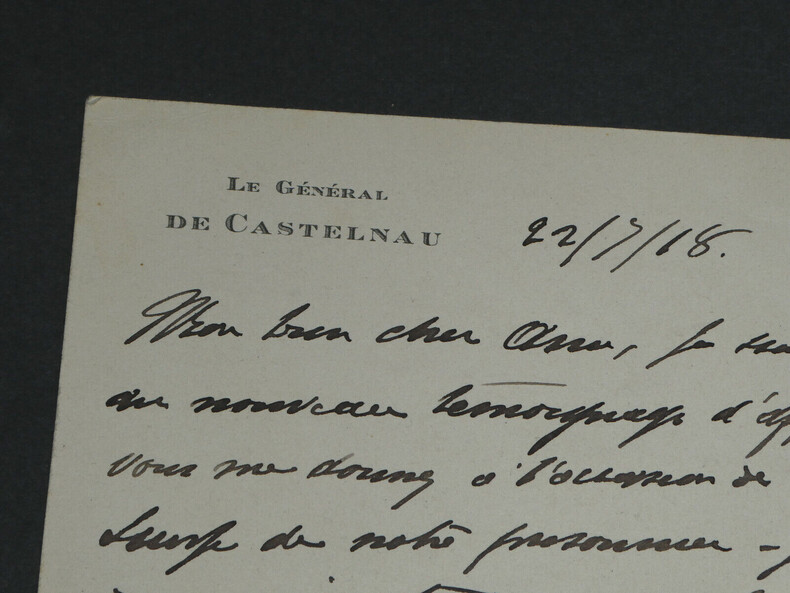 LE GÉNÉRAL
DE CASTELNAU
22/7/18.
Mon bien cher Ami, je
du nouveau témoignage
vous me donnez à l'occasion de
de notre prisonnier -